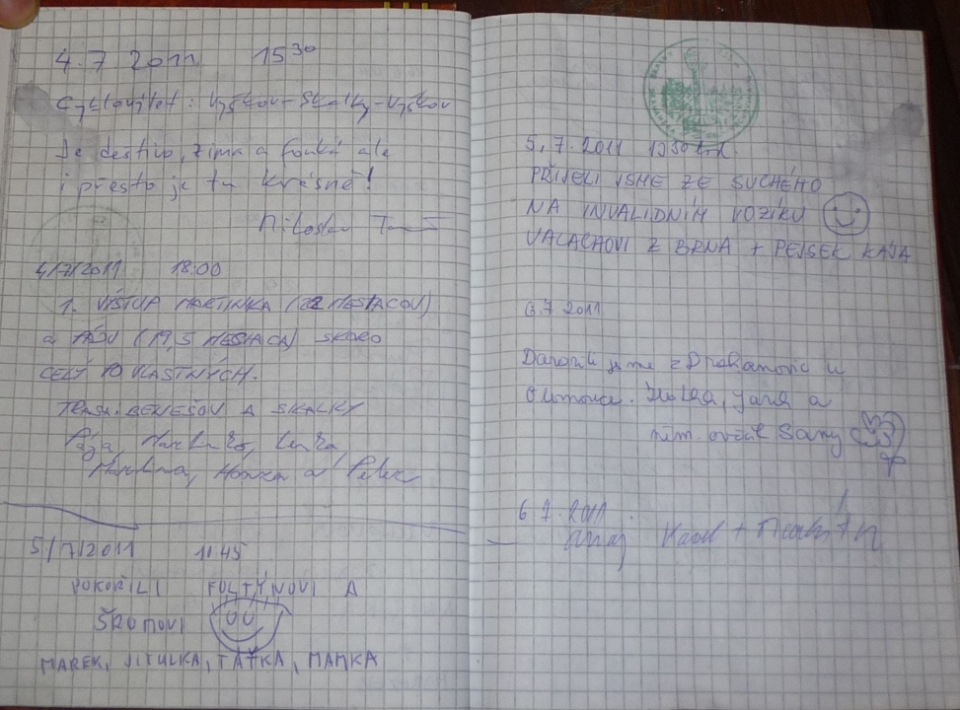 4.7 2011 15³⁰
Cyklovýlet: Vyškov-Skalky-Vyškov
Je deštivo, zima a fouká ale
i přesto je tu krásně!
Miloslav
4/7/2011 18:00
1. VÍSTUP MARTINKA (22 MESIACOV)
a PÁJU (19,5 MESIACA) SKORO
CELÝ PO VLASTNÝCH.
TRASA: BENEŠOV A SKALKY
Pája, Martinko, Lenka,
Martina, Monka a Peter
5/7/2011 11:45
POKOŘILI FOLTÝNOVI A
ŠRUMOVI
MAREK, JITULKA, TAŤKA, MAMKA
5.7.2011
PŘIJELI JSME ZE SUCHÉHO
NA INVALIDNÍM VOZÍKU
VALACHOVI Z BRNA + PEJSEK KÁJA
6.7 2011
Dorazili jsme z Drahanovic u
Olomouce. Jana a
něm. ovčák Sany
6 7.2011
Karel +